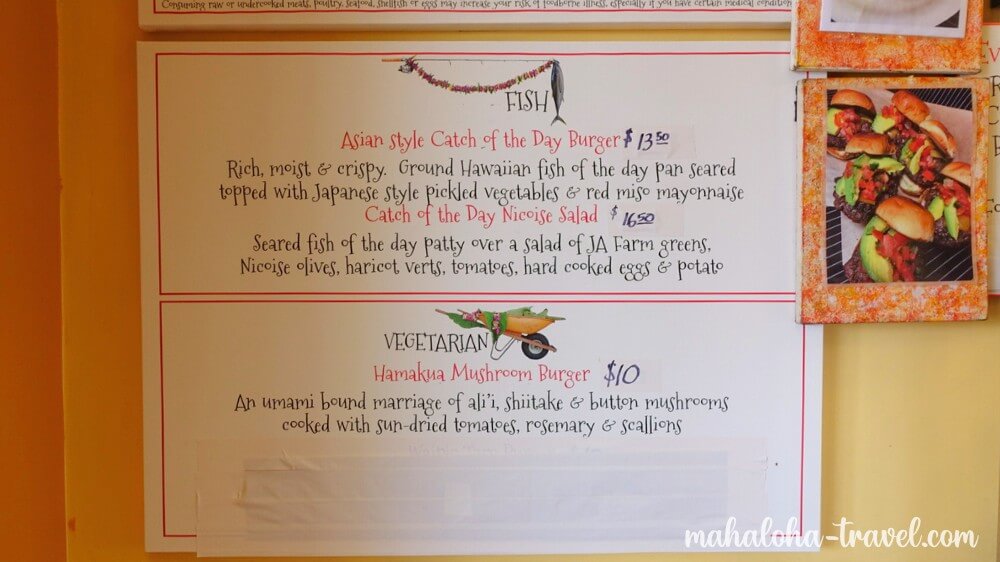 Consuming raw or undercooked meats, poultry, seafood, shellfish or eggs may increase your risk of foodborne illness, especially if you have certain medical condition
FISH
Asian Style Catch of the Day Burger $13.50
Rich, moist & crispy. Ground Hawaiian fish of the day pan seared
topped with Japanese style pickled vegetables & red miso mayonnaise
Catch of the Day Nicoise Salad $16.50
Seared fish of the day patty over a salad of JA Farm greens,
Nicoise olives, haricot verts, tomatoes, hard cooked eggs & potato
VEGETARIAN
Hamakua Mushroom Burger $10
An umami bound marriage of ali'i, shiitake & button mushrooms
cooked with sun-dried tomatoes, rosemary & scallions
mahaloha-travel.com